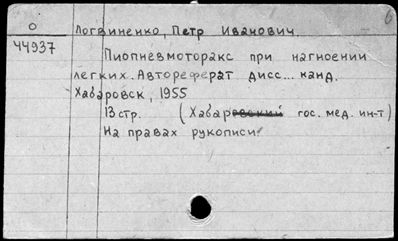 О
44937
Логвиненко, Петр Иванович.
Пиопневмоторакс при нагноении
легких. Автореферат дисс... канд.
Хабаровск, 1955
13 стр. (Хабаровский гос. мед. ин-т)
На правах рукописи